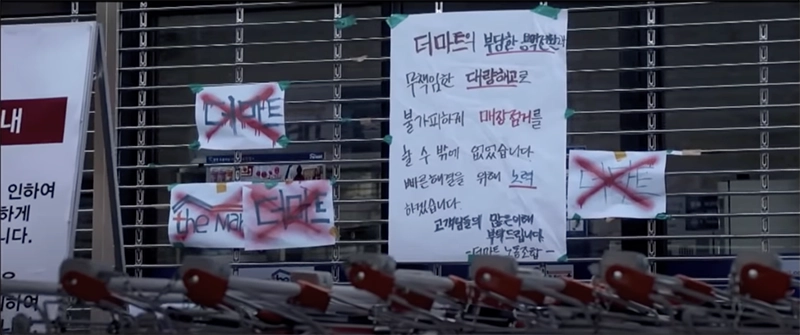 내
인하여
하게
니다.
은
하여
더마트
the Mar
더마트
더마트의 부당한
무책임한 대량해고로
불가피하게 매장점거를
할 수 밖에 없었습니다.
빠른해결을 위해 노력
하겠습니다.
고객님들의 많은이해
부탁드립니다.
-더마트 노동조합-
더마트